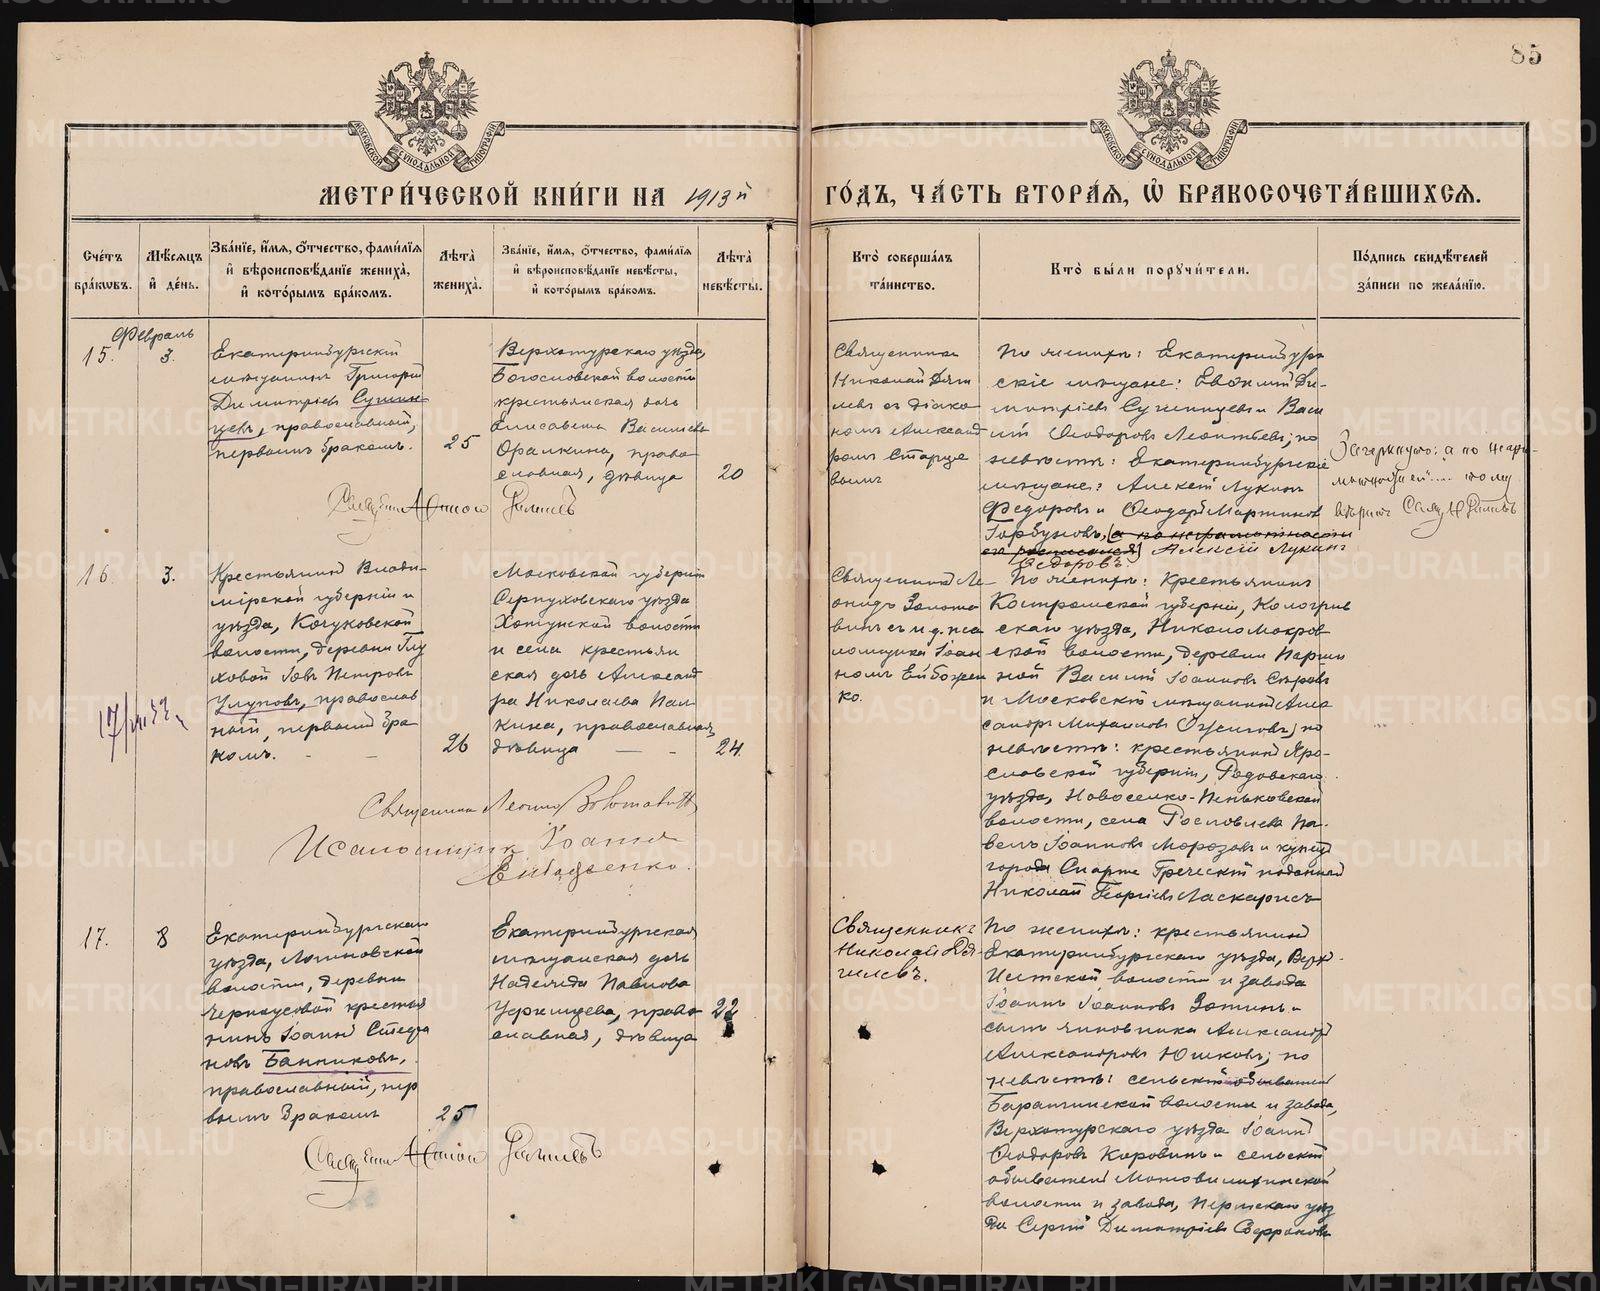 85
МОСКОВСКОЙ СУНОДАЛЬНОЙ ТИПОГРАФІИ
МОСКОВСКОЙ СУНОДАЛЬНОЙ ТИПОГРАФІИ
МЕТРИ́ЧЕСКОЙ КНИ́ГИ НА 1913й
ГО́ДЪ, ЧА́СТЬ ВТОРА́Я, Ѽ БРАКОСОЧЕТА́ВШИХСЯ.
Сче́тъ
бра́кѡвъ.
Мѣ́сяцъ
и҆ де́нь.
Зва́нїе, и҆́мя, ѻ҆́тчество, фами́лїя
и҆ вѣроисповѣ́данїе жениха̀,
и҆ кото́рымъ бра́комъ.
Лѣ́та̀
жениха̀.
Зва́нїе, и҆́мя, ѻ҆́тчество, фами́лїя
и҆ вѣроисповѣ́данїе невѣ́сты,
и҆ кото́рымъ бра́комъ.
Лѣ́та̀
невѣ́сты.
Кто̀ соверша́лъ
та́инство.
Кто̀ бы́ли поручи́тели.
По́дпись свидѣ́телей
за́писи по жела́нїю.
Февраль
15.
3.
Екатеринбургскій
мѣщанинъ Григорій
Димитріевъ Сушин-
цевъ, православный,
первымъ бракомъ.
25
Верхотурскаго уѣзда,
Богословской волости
крестьянская дочь
Елисавета Васильева
Оралкина, право
славная, дѣвица
20
Священникъ
Николай Дяги
левъ съ діако
номъ Александ
ромъ Старце
вымъ
По женихѣ: Екатеринбург
скіе мѣщане: Евѳимій Ди-
митріевъ Сушинцевъ и Васи
лій Ѳеодоровъ Леонтьевъ; по
невѣстѣ: Екатеринбургскіе
мѣщане: Алексѣй Лукинъ
Федоровъ и Ѳеодоръ Мартиновъ
Горбуновъ, (а по неграмотности
его росписался) Алексій Лукинъ
Ѳедоровъ
Зачеркнуто: а по негра-
мотности ей....
вѣрить Свящ. Н. Дягилевъ
Священникъ Николай Дягилевъ
16.
3.
Крестьянинъ Влади-
мірской губерніи и
уѣзда, Кочуковской
волости, деревни Глу
ховой Іовъ Петровъ
Улуповъ, православ
ный, первымъ бра
комъ.
26
Московской губерніи
Серпуховскаго уѣзда
Хатунской волости
и села крестьян
ская дочь Александ
ра Николаева Пал
кина, православная,
дѣвица
24.
Священникъ Ле-
онидъ Золота
винъ съ и.д. пса
ломщика Іоан
номъ Ейбожен
ко.
По женихѣ: крестьянинъ
Костромской губерніи, Кологрив
скаго уѣзда, Николо Мокров
ской волости, деревни Паршин
ной Василій Іоанновъ Сѣровъ
и Московскій мѣщанинъ Алек
сандръ Михаиловъ Ожеговъ; по
невѣстѣ: крестьянинъ Яро-
славской губерніи, Родовскаго
уѣзда, Новоселко-Пеньковской
волости, села Рословлева Па-
велъ Іоанновъ Морозовъ и купецъ
города Спарте Греческій подданный
Николай Георгіевъ Ласкарисъ
Священникъ Леонидъ Золотавинъ
Псаломщикъ Іоаннъ
Ейбоженко.
17.
8
Екатеринбургскаго
уѣзда, Логиновской
волости, деревни
Черноусовой крестья
нинъ Іоаннъ Стефа
новъ Банниковъ,
православный, пер
вымъ бракомъ
25
Екатеринбургская
мѣщанская дочь
Надежда Павлова
Уфимцева, право
славная, дѣвица
22
Священникъ
Николай Дя
гилевъ.
По женихѣ: крестьянинъ
Екатеринбургскаго уѣзда, Верх-
Исетской волости и завода
Іоаннъ Іоанновъ Зотинъ и
сынъ чиновника Александръ
Александровъ Юшковъ; по
невѣстѣ: сельскій обыватель
Баранчинской волости и завода,
Верхотурскаго уѣзда Іоаннъ
Ѳеодоровъ Коровинъ и сельскій
обыватель Мотовилихинской
волости и завода, Пермскаго уѣз
да Сергій Димитріевъ
Священникъ Николай Дягилевъ